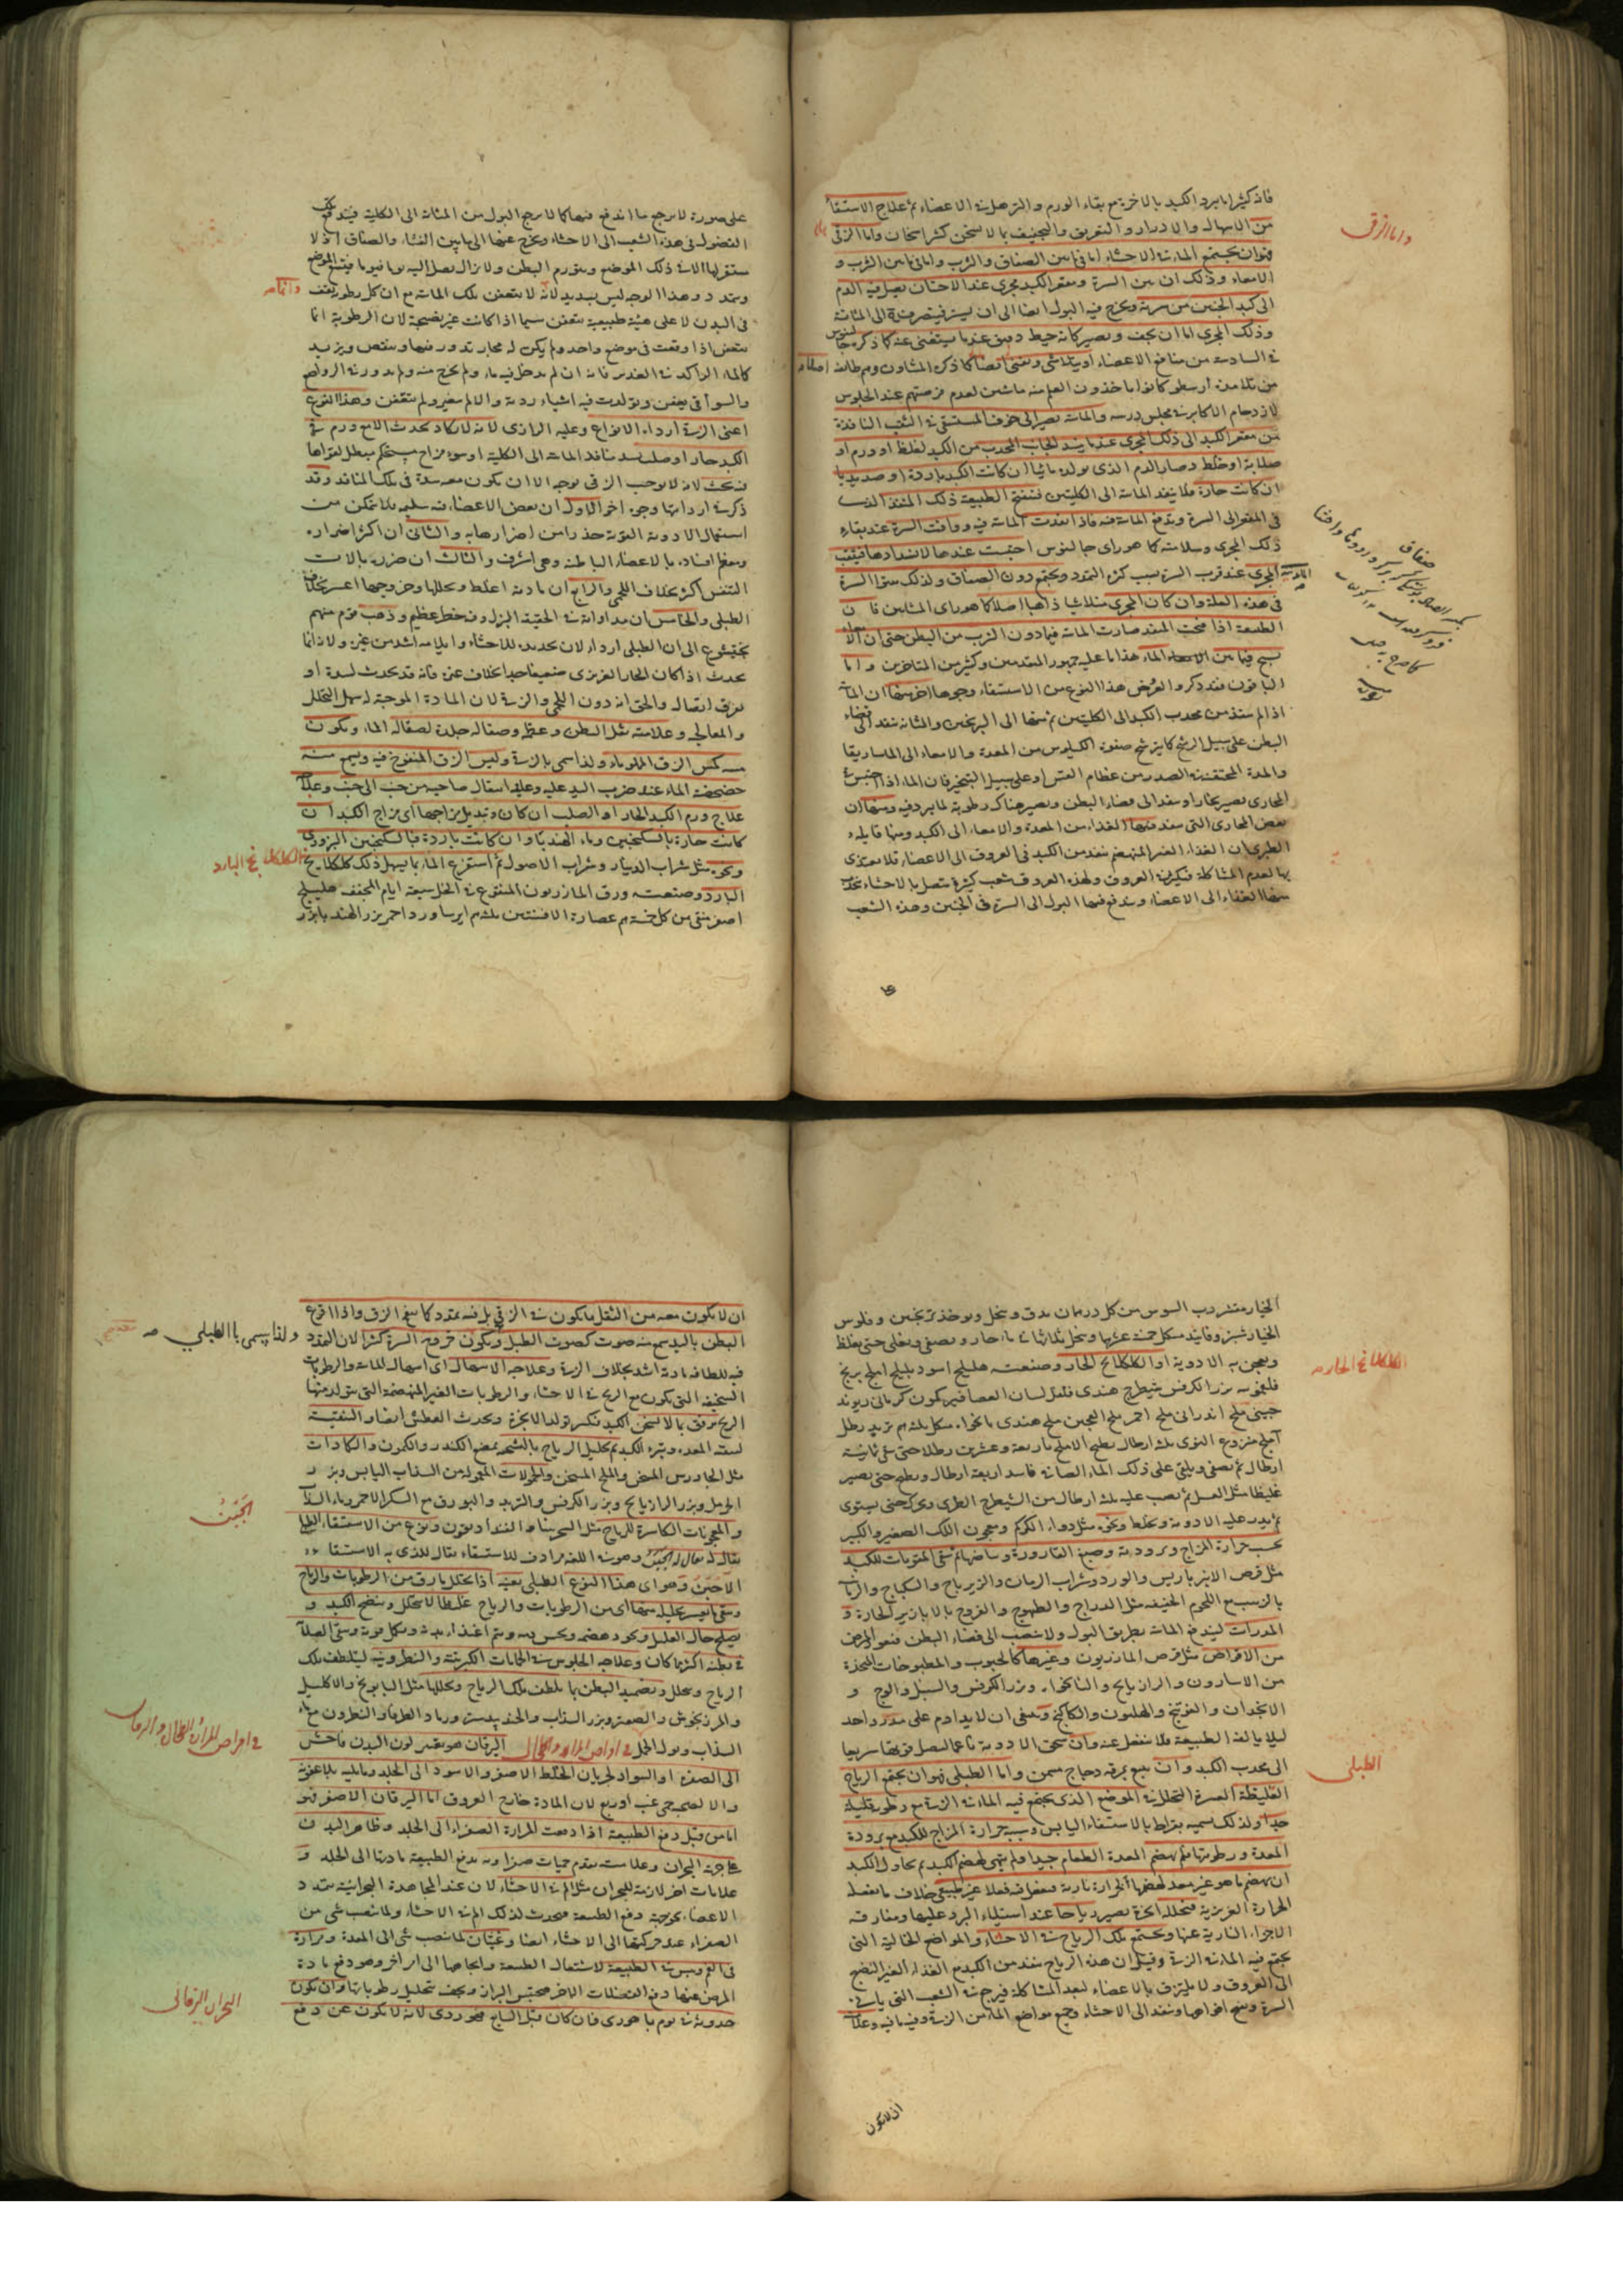 فانه كثيرا ما يبرد الكبد بالاخرة مع بقاء الورم والترهل في الاعضاء ثم علاج الاستسقاء
من الاسهال والادرار والتعريق والتجفيف بما لا يسخن كثير اسخان واما الزقي
فهو ان يجتمع المائية في الاحشاء اما فيما بين الصفاق والثرب واما فيما بين الثرب و
الامعاء وذلك ان بين السرة ومقعر الكبد مجرى عند الاجتنان يصل فيه الدم
الى كبد الجنين من سرته ويخرج فيه البول ايضا الى ان يستر فيتصرف الى المثانة
وذلك المجرى اما ان يجف ويصير كانه خيط دقيق عندما يستغنى عنه كما ذكره جالينوس
في السادسة من منافع الاعضاء او يتلاشى ويفنى ايضا كما ذكره المشاؤن وهم طائفة
من تلامذة ارسطو كانوا ياخذون العلم منه ماشين لعدم فرصتهم عند الجلوس
لازدحام الاكابر في مجلس درسه والمائية تصير الى جوف المستسقي في الشعب النافذة
من مقعر الكبد الى ذلك المجرى عندما ينسد الجانب المحدب من الكبد لغلظ او ورم او
صلابة او خلط وصار الدم الذي يولده مائيا ان كانت الكبد باردة او صديديا
ان كانت حارة فلا ينفذ المائية الى الكليتين فتفتح الطبيعة ذلك المنفذ الذي
في المقعر الى السرة ويندفع المائية فيه فاذا نفذت المائية فيه ووافت السرة عند بقاء
ذلك المجرى وسلامته كما هو راى جالنوس احتبست عندها لانسدادها فينفتق
المجرى عند قرب السرة بسبب كثرة التمدد ويجتمع دون الصفاق ولذلك ينتو السرة
في هذه العلة وان كان المجرى متلاشيا ذاهبا اصلا كما هو راى المشائين فان
الطبيعة اذا فتحت المنفذ صارت المائية فيما دون الثرب من البطن حتى ان الامعاء
تسبح فيما بين الماء هذا ما عليه جمهور المتقدمين وكثير من المتاخرين واما
الباقون فقد ذكروا لعروض هذا النوع من الاستسقاء وجوها اخر منها ان المائية
اذا لم تنفذ من محدب الكبد الى الكليتين ثم منها الى البربخين والمثانة تنفذ الى فضاء
البطن على سبيل الرشح كما يترشح صفوة الكيلوس من المعدة والامعاء الى الماساريقا
والمدة المحتقنة في الصدر من عظام القس او على سبيل التبخير فان الماء اذا احتبس في
المجارى يصير بخارا وينفذ الى فضاء البطن ويصير هناك رطوبة لما يبرد فيه ومنها ان
بعض المجارى التي ينفذ فيها الغذاء من المعدة والامعاء الى الكبد ومنها قايله
الطبرى ان الغذاء الغير المنهضم ينفذ من الكبد في العروق الى الاعضاء فلا يغتذى
بها لعدم المشاكلة فيكثر في العروق ولهذه العروق شعب كثيرة يتصل بالاحشاء يجذب
منها الغذاء الى الاعضاء ويندفع فيها البول الى السرة في الجنين وهذه الشعب
واما الزقي
صفاق
على صورة لا يرجع ما اندفع فيها كما لا يرجع البول من المثانة الى الكلية فيندفع تلك
الفضول في هذه الشعب الى الاحشاء ويخرج عنها الى ما بين الغشاء والصفاق اذ لا
مستقر لها الا في ذلك الموضع ويتورم البطن ولا يزال يصل اليه يوما فيوما فيتسع الموضع
ويتمدد وهذا الوجه ليس بسديد لانه لا يتعفن تلك المائية مع ان كل رطوبة يقف
في البدن لا على هيئة طبيعية يتعفن سيما اذا كانت غير نضيجة لان الرطوبة انما
يتعفن اذا وقفت في موضع واحد ولم يكن له مجار تدور فيها وينقص ويزيد
كالماء الراكد في الغدير فانه ان لم يدخل فيه ماء ولم يخرج منه ولم يدور فيه الرياح
والسواقي يعفن وتولدت فيه اشياء ردية والا لم يتغير ولم يتعفن وهذا النوع
اعني الزقي اردأ الانواع وعليه الرازى لانه لا يكاد يحدث الا مع ورم في
الكبد حار او صلب يسد منافذ المائية الى الكلية او سوء مزاج مستحكم يبطل لقواها
فيه بحث لانه لا يوجب الزقي بوجه الا ان يكون معه سدة في تلك المنافذ وقد
ذكر في اردائها وجوه اخر الاول ان بعض الاعضاء فيه سليم فلا يتمكن من
استعمال الادوية القوية حذرا من اضرارها به والثاني ان اكثر اضراره
ومعظم افساده بالاعضاء الباطنة وهي اشرف والثالث ان ضرره بالات
التنفس اكثر بخلاف اللحمي والرابع ان مادته اغلظ وتحللها وخروجها اعسر بخلاف
الطبلي والخامس ان مداواته في الحقيقة البزل وفيه خطر عظيم وذهب قوم منهم
بختيشوع الى ان الطبلي اردأ لان تمديده للاحشاء وايلامه اشد من غيره ولانه انما
يحدث اذا كان الحار الغريزى ضعيفا جدا بخلاف غيره فانه قد يحدث لسدة او
تفرق اتصال والحق انه دون اللحمي والزقي لان المادة الموجبة له سهل التحلل
والمعالجة وعلامته ثقل البطن وعظمه وصقالة جلده لصقالة الماء ويكون
مسه كمس الزق المملو ماء ولذا سمي بالزقي وليس الزق المنفوخ فيه ويسمع منه
خضخضة الماء عند ضرب اليد عليه وعلى انتقال صاحبه من جنب الى جنب وعلاجه
علاج ورم الكبد الحار او الصلب ان كان وتبديل مزاجها اى مزاج الكبد ان
كانت حارة بالسكنجبين وماء الهندبا وان كانت باردة فبالسكنجبين البزورى
ونحوه مثل شراب الدينار وشراب الاصول ثم استفرغ الماء بما يسهل ذلك كالكلكلانج
البارد وصنعته ورق المازريون المنقوع في الخل سبعة ايام المجفف هليلج
اصفر منقى من كل خمسة دراهم عصارة الافسنتين ثلثة دراهم ايرسا ورد احمر بزر الهندبا بزر
الكلكلانج البارد
الخيار مقشر رب السوس من كل درهمان يدق وينخل ويؤخذ ترنجبين وفلوس
الخيار شنبر وفانيد من كل خمسة عشر درهما وينحل بماء حار ويصفى ويغلى حتى يغلظ
ويعجن به الادوية او الكلكلانج الحار وصنعته هليلج اسود بليلج املج برنج
فلفلمويه بزر الكرفس شيطرج هندى فلفل لسان العصافير كمون كرماني ريوند
صيني ملح اندراني ملح احمر ملح العجين ملح هندى نانخواه من كل ثلثة دراهم تربد رطل
املج منزوع النوى ثلثة ارطال يطبخ الاملج باربعة وعشرين رطلا حتى يبقى ثمانية
ارطال ثم يصفى ويلقى على ذلك الماء الصافي فانيد اربعة ارطال ويطبخ حتى يصير
غليظا مثل العسل ثم يصب عليه ثلثة ارطال من الشيرج الطرى ويحرك حتى يستوى
ثم يذر عليه الادوية ويخلط ونحوه مثل دواء الكركم ومعجون اللك الصغير والكبير
بحسب حرارة المزاج وبرودته وصبغ القارورة وبياضها ثم يسقى المقويات للكبد
مثل قرص الاميرباريس والورد وشراب الرمان والزيرباج والسكباج والرمانية
بالزبيب مع اللحوم الخفيفة مثل الدراج والطيهوج والفروج بالابازير الحارة و
المدرات ليندفع المائية بطريق البول ولا ينصب الى فضاء البطن فيعود المرض
من الاقراص مثل قرص المازريون وغيرها كالحبوب والمطبوخات المتخذة
من الاسارون والرازيانج والنانخواه وبزر الكرفس والسنبل والوج و
الانجدان والفوتنج والهليون والكاكنج وينبغي ان لا يداوم على مدر واحد
ليلا يالفه الطبيعة فلا ينفعل عنه وان يسحق الادوية ناعما ليصل قوتها سريعا
الى محدب الكبد وان يتبع بمرقة دجاج مسمن واما الطبلي فهو ان يجتمع الرياح
الغليظة العسرة التحلل في الموضع الذى يجتمع فيه المائية في الزقي مع رطوبة قليلة
جدا ولذلك سميه بقراط بالاستسقاء اليابس وسببه حرارة المزاج للكبد مع برودة
المعدة ورطوبتها فلم يهضم المعدة الطعام جيدا ولم تهيئ لهضم الكبد ثم يحاول الكبد
ان يهضم ما هو غير معد لهضمها بحرارة نارية فيفعل فيه فعلا غير طبيعي خلاف ما يفعله
الحرارة الغريزية فتحلله ابخرة يصير رياحا عند استيلاء البرد عليها ومفارقة
الاجزاء النارية عنها ويجتمع تلك الرياح في الاحشاء والمواضع الخالية التي
يجتمع فيه المائية في الزقي وقيل ان هذه الرياح ينفذ من الكبد مع الغذاء الغير النضيج
الى العروق ولا يلتزق بالاعضاء لبعد المشاكلة فيرجع في الشعب التي ياتي
السرة ويفتح افواهها وينفذ الى الاحشاء وجميع مواضع الماء من الزقي وفيه ما فيه وعلامته
الكلكلانج الحار
الطبلي
ان لا يكون
ان لا يكون معه من الثقل ما يكون في الزقي بل فيه تمدد كما ينفخ الزق واذا قرع
البطن باليد سمع منه صوت كصوت الطبل ويكون خروج السرة كثيرا لان التمدد
فيه للطافة مادته اشد بخلاف الزقي وعلاجه الاسهال اى اسهال المائية والرطوبات
السخيفة التي يكون مع الريح في الاحشاء والرطوبات الغير المنهضمة التي يتولد منها
الريح برفق بما لا يسخن الكبد فيكثر تولد الابخرة ويحدث العطش ايضا والتنقية
لبقية المعدة وتبريد الكبد ثم تحليل الرياح بالتكميد بمضغ الكندر والكمون والكمادات
مثل الجاورس المسخن والملح المسخن والحمولات المعمولة من السذاب اليابس وبزر
الحرمل وبزر الرازيانج وبزر الكرفس والتربد والبورق مع السكر الاحمر وماء السذاب
والمعجونات الكاسرة للرياح مثل السجزينا والفنداديقون ونوع من الاستسقاء الطبلي
يقال له الحبن وهو في اللغة مرادف للاستسقاء يقال للذى به الاستسقاء
الاحبن وهو اى هذا النوع الطبلي بعينه اذا تحلل ما رق من الرطوبات والرياح
وبقي ما يعسر تحليله منها اى من الرطوبات والرياح غليظا لا يتحلل وينضج الكبد و
يصلح حال العليل ويجود هضمه ويحسن لونه ويتم اغتذاء بدنه ويكمل قوته ويبقى الصلابة
في بطنه اكثر ما كان وعلاجه الجلوس في الحمامات الكبريتية والنطرونية ليتلطف تلك
الرياح ويتحلل وتضميد البطن بما يلطف تلك الرياح ويحللها مثل البابونج والاكليل
والمرزنجوش والصعتر وبزر السذاب والجندبيدستر ورماد الطرفا والنطرون مع ماء
السذاب وبول الجمل في امراض المرارة والطحال اليرقان هو تغير لون البدن فاحش
الى الصفرة او السواد لجريان الخلط الاصفر والاسود الى الجلد وما يليه بلا عفونة
والا لصحبه حمى غب او ربع لان المادة خارج العروق اما اليرقان الاصفر فهو
اما من قبل دفع الطبيعة اذا دفعت المرارة الصفراء الى الجلد وظاهر البدن
على جهة البحران وعلامته تقدم حميات صفراوية يدفع الطبيعة مادتها الى الجلد و
علامات اخر لازمة للبحران مثل الم في الاحشاء لان عند المجاهدة البحرانية يتمدد
الاعضاء بموجبة دفع الطبيعة فيحدث لذلك الم في الاحشاء ولما ينصب شي من
الصفراء عند حركتها الى الاحشاء ايضا وغثيان لما ينصب شي الى المعدة ومرارة
في الفم ويبس في الطبيعة لاشتغال الطبيعة واتجاهها الى امر اخر وهو دفع مادة
المرض عنها دون الفضلات الاخر فيحتبس البراز ويجف بتحليل رطوباتها وان يكون
حدوثه في يوم باحورى فان كان قبل السابع فهو ردى لانه لا يكون عن دفع
ولذا يسمى بالطبلي صح
الحبن
في امراض المرارة والطحال واليرقان
البحران اليرقاني